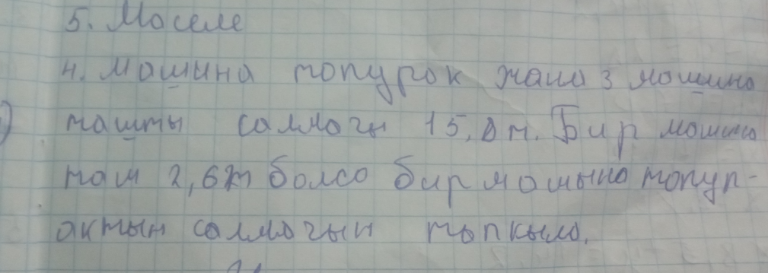 5. Маселе
4. машина топурак жана 3 машина
таштын салмагы 15,8 т. Бир машина
таш 2,6 т болсо бир машына топур-
актын салмагын тапкыла.